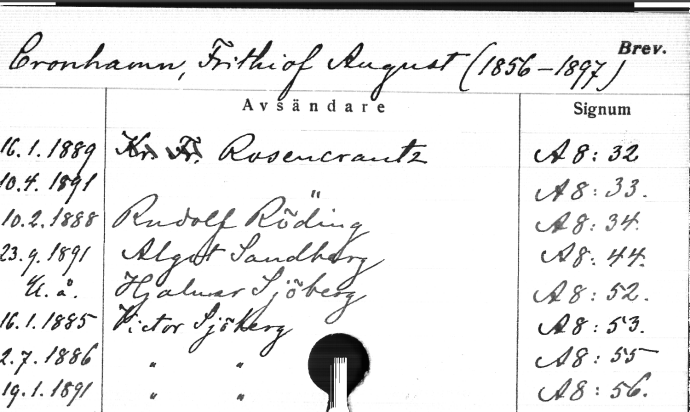 Cronhamn, Frithiof August (1856-1897) Brev.
Avsändare Signum
16.1.1889 Kr. Fr. Rosencrantz A8:32
10.4.1891 " A8:33.
10.2.1888 Rudolf Röding A8:34.
23.9.1891 Algot Sandberg A8:44.
U.å. Hjalmar Sjöberg A8:52.
16.1.1885 Victor Sjöberg A8:53.
2.7.1886 " " A8:55
19.1.1891 " " A8:56.